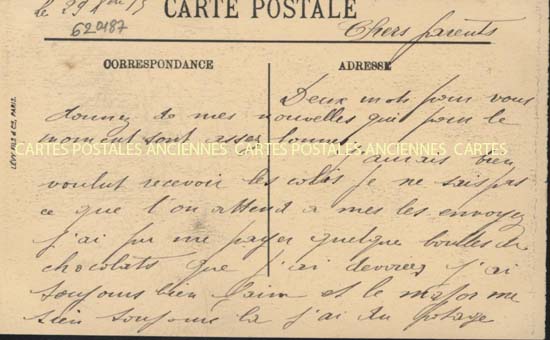 le 29
CARTE POSTALE
620187
Chers parents
CORRESPONDANCE
ADRESSE
LÉVY FILS & Cie, PARIS.
Deux mots pour vous
donnez de mes nouvelles qui pour le
moment sont assez bonnes.
CARTES POSTALES ANCIENNES CARTES POSTALES ANCIENNES CARTES
J'aurais bien
voulut recevoir les colis je ne sais pas
ce que l'on attend a mes les envoyez
j'ai pu me payer quelque boules de
chocolats que j'ai devorez j'ai
toujours bien faim et le major me
tien toujours la j'ai du potage